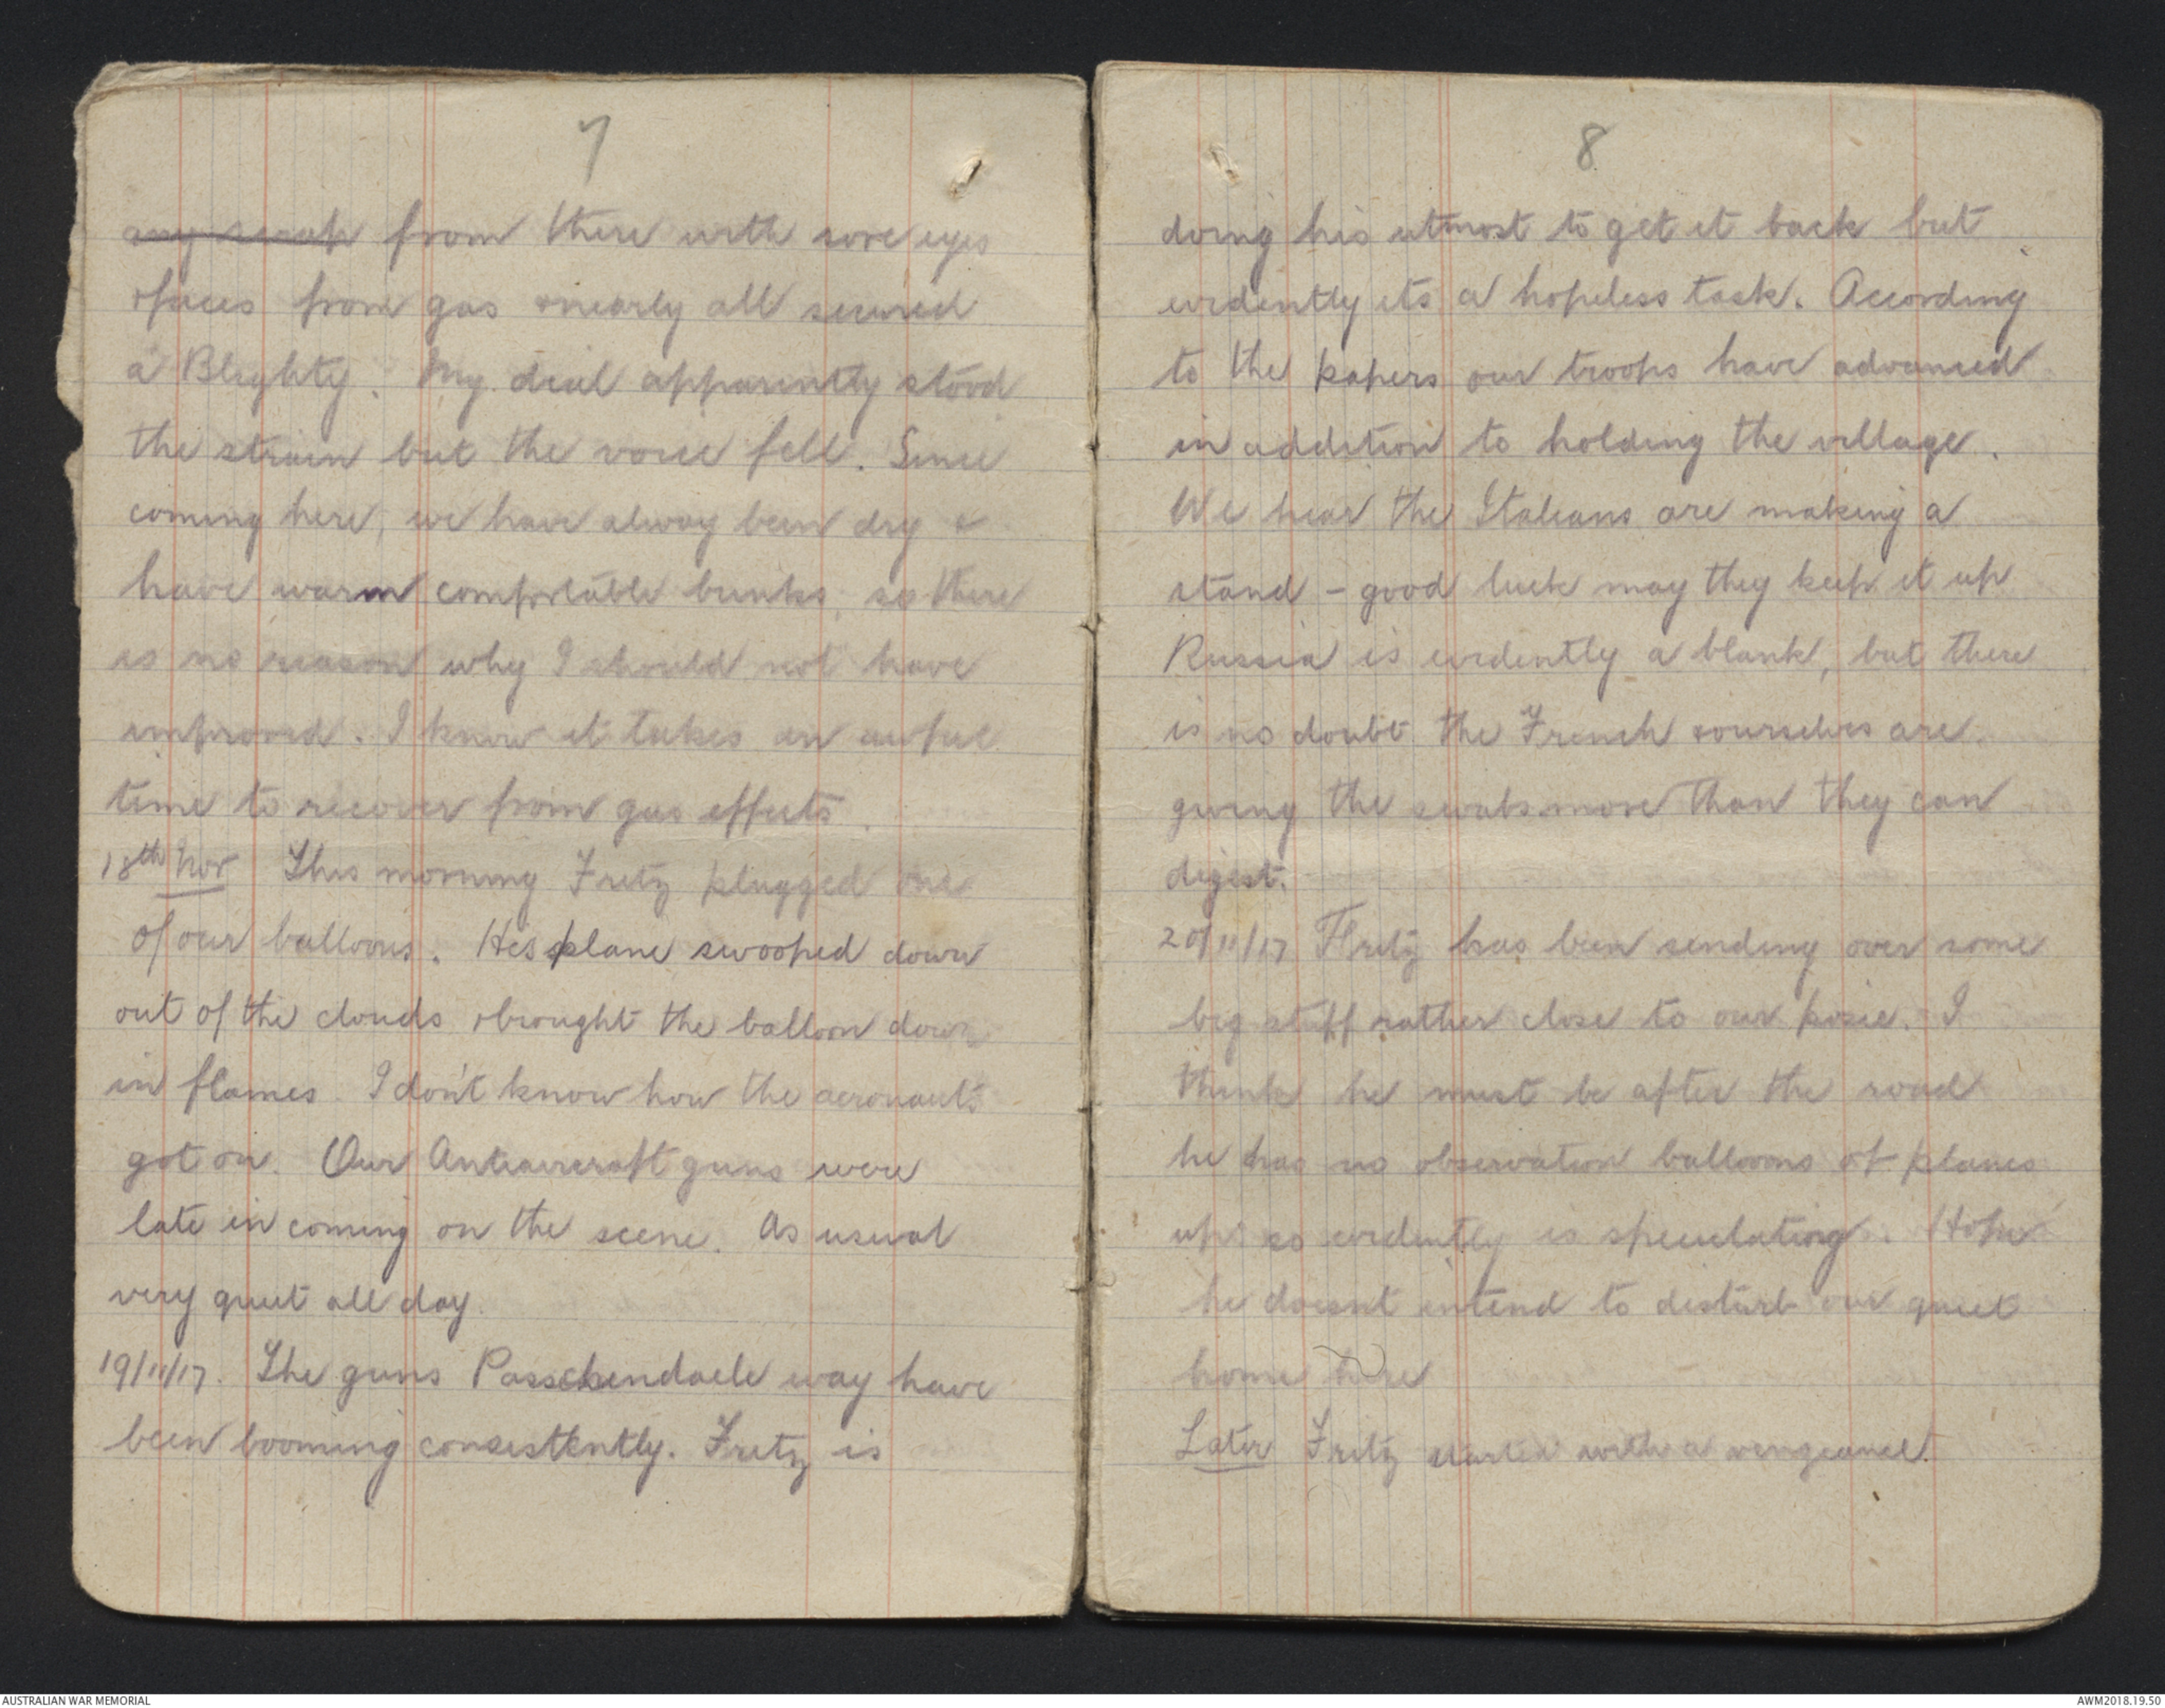 7
any scrap from there with sore eyes
& faces from gas & nearly all secured
a Blighty. My dial apparently stood
the strain but the voice fell. Since
coming here, we have alway been dry &
have warm comfortable bunks, so there
is no reason why I should not have
improved. I know it takes an awful
time to recover from gas effects.
18th Nov This morning Fritz plugged one
of our balloons. His plane swooped down
out of the clouds & brought the balloon down
in flames. I don't know how the aeronauts
got on. Our Antiaircraft guns were
late in coming on the scene. As usual
very quiet all day.
19/11/17. The guns Passchendaele way have
been booming consistently. Fritz is
8
doing his utmost to get it back but
evidently its a hopeless task. According
to the papers our troops have advanced
in addition to holding the village.
We hear the Italians are making a
stand - good luck may they keep it up
Russia is evidently a blank, but there
is no doubt the French & ourselves are
giving the swabs more than they can
digest.
20/11/17 Fritz has been sending over some
big stuff rather close to our posie. I
think he must be after the road
he has no observation balloons or planes
up so evidently is speculating. Hope
he doesnt intend to disturb our quiet
home here
Later Fritz started with a vengeance.
AUSTRALIAN WAR MEMORIAL
AWM2018.19.50